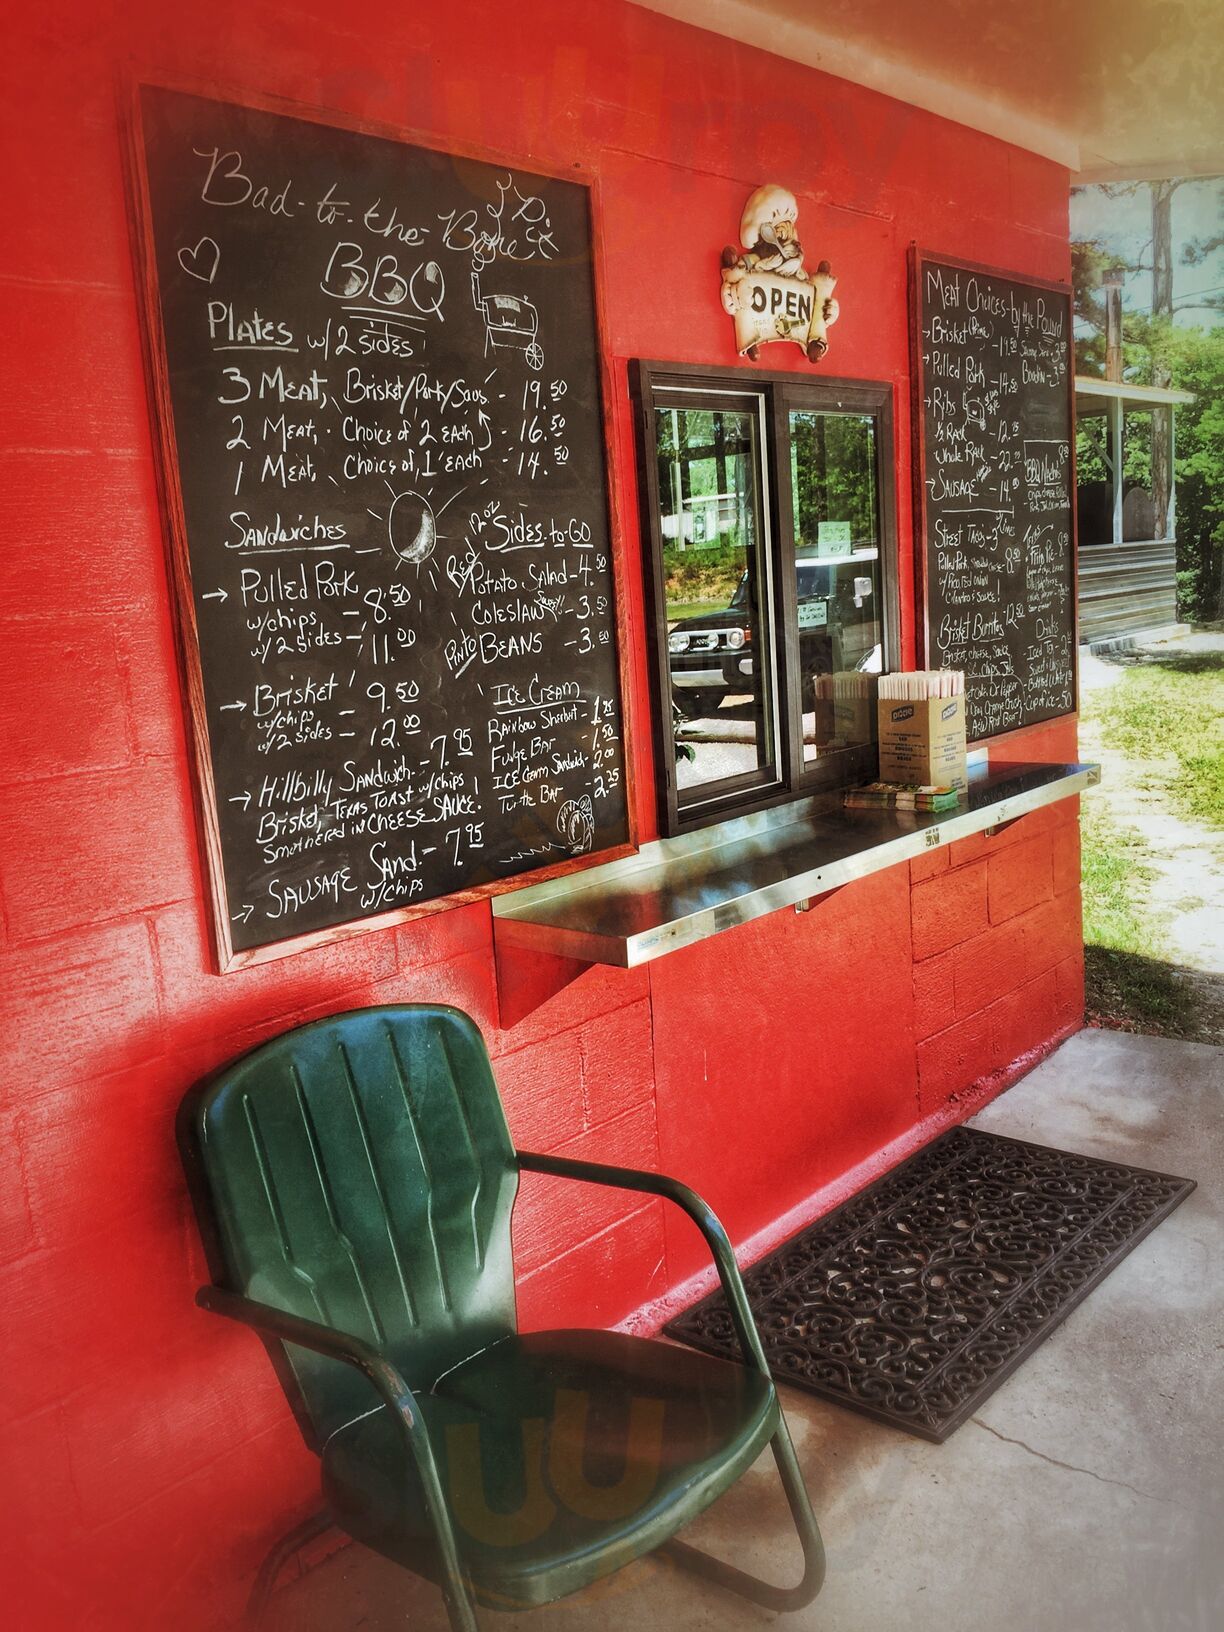 Bad-to-the-Bone
BBQ
Plates w/2 sides
3 Meat, Brisket/Pork/Saus. - 19.50
2 Meat, Choice of 2 each - 16.50
1 Meat, Choice of, 1 each - 14.50
Sandwiches
→ Pulled Pork
w/chips - 8.50
w/ 2 sides - 11.00
→ Brisket 9.50
w/chips
w/ 2 sides - 12.00
→ Hillbilly Sandwich - 7.95
Brisket, Texas Toast w/chips
Smothered in CHEESE SAUCE!
→ Sausage Sand. - 7.95
w/chips
12 oz Sides-to-GO
Red Potato Salad - 4.50
Coleslaw - 3.50
Pinto Beans - 3.50
Ice Cream
Rainbow Sherbet - 1.75
Fudge Bar - 1.50
Ice Cream Sandwich - 2.00
Turtle Bar - 2.25
OPEN
Meat Choices-by the Pound
→ Brisket - 19.50
→ Pulled Pork - 14.50
→ Ribs
½ Rack - 12.
Whole Rack - 22.
→ Sausage - 14.
Boudin - 3.
BBQ Nachos
Street Tacos - 3
Pulled Pork,
w/ Roasted onion
Cilantro & Sauce!
Frito Pie -
Brisket Burritos - 12.50
Brisket, Cheese, Sauce
Drinks
Iced Tea
Bottled Water
Cup of ice - .50
Orange Crush
Root Beer!
DIXIE